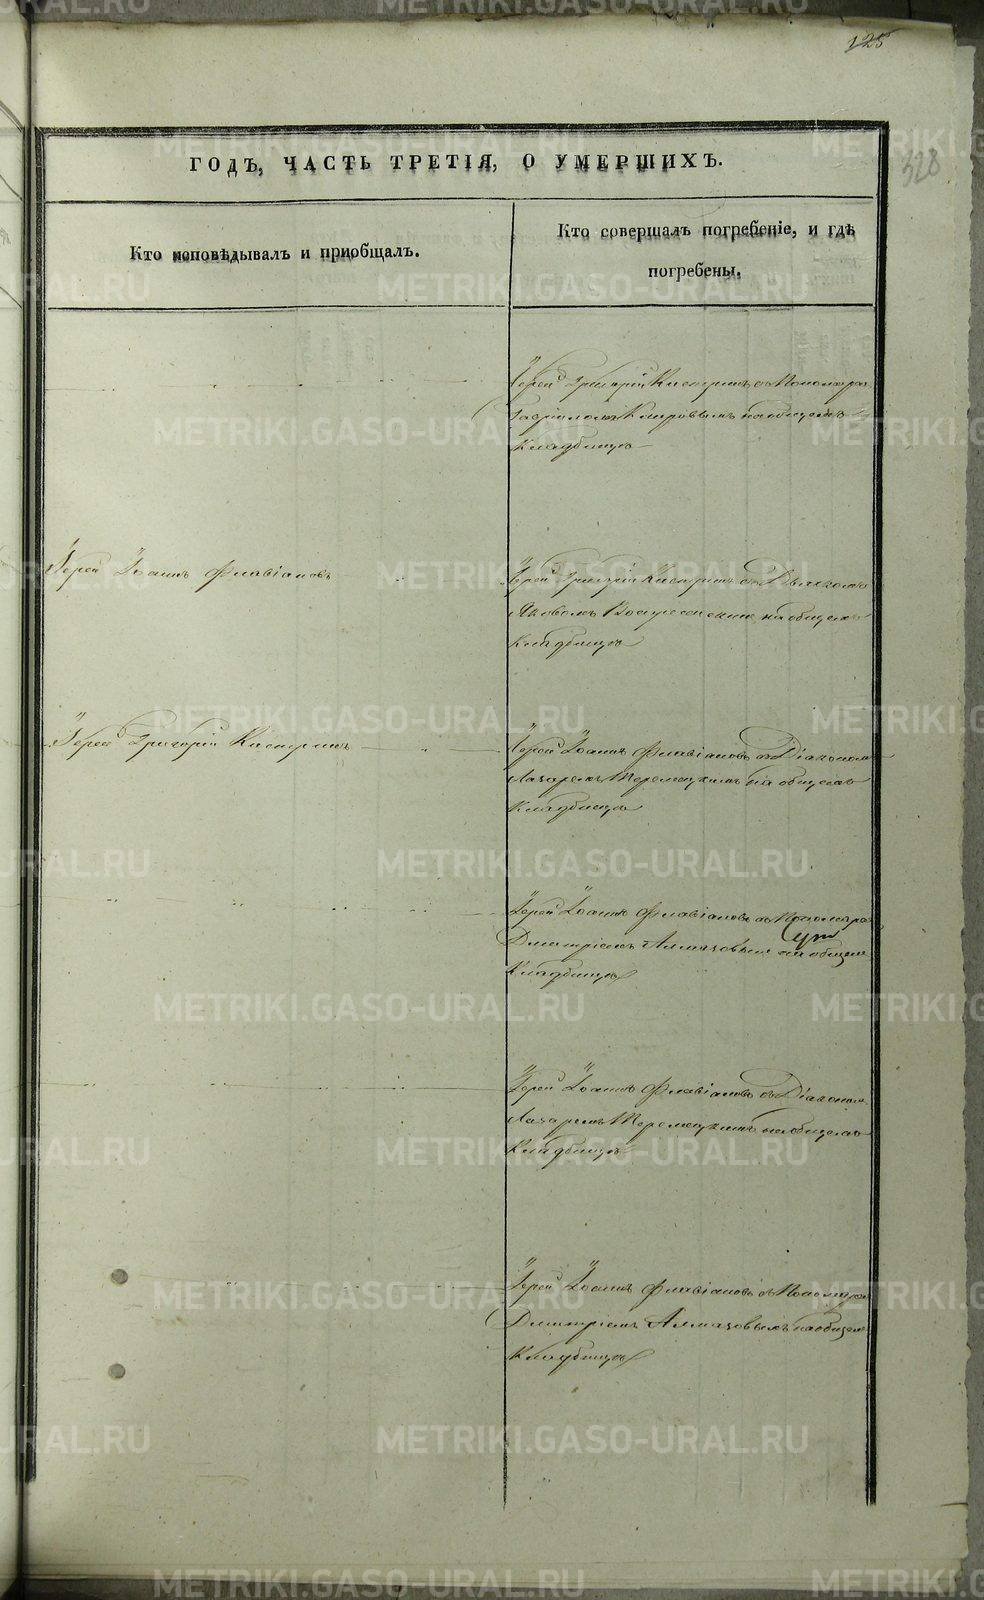 125
328
ГОДЪ, ЧАСТЬ ТРЕТІЯ, О УМЕРШИХЪ.
Кто исповѣдывалъ и пріобщалъ.
Кто совершалъ погребеніе, и гдѣ
погребены.
Іерей Григорій Кастринъ съ Пономаремъ
на общемъ
Кладбищѣ
Іерей Іоаннъ Флавіановъ
Іерей Григорій съ Дьякономъ
Яковомъ Воскресенскимъ на общемъ
Кладбищѣ
Іерей Григорій
Іерей Іоаннъ Флавіановъ съ Діакономъ
Лазаремъ на общемъ
Кладбищѣ
Іерей Іоаннъ Флавіановъ съ Пономаремъ
Дмитріемъ Алмазовымъ на общемъ
Кладбищѣ
Іерей Іоаннъ Флавіановъ съ Діакономъ
Лазаремъ на общемъ
Кладбищѣ
Іерей Іоаннъ Флавіановъ съ Пономаремъ
Дмитріемъ Алмазовымъ на общемъ
Кладбищѣ
METRIKI.GASO-URAL.RU